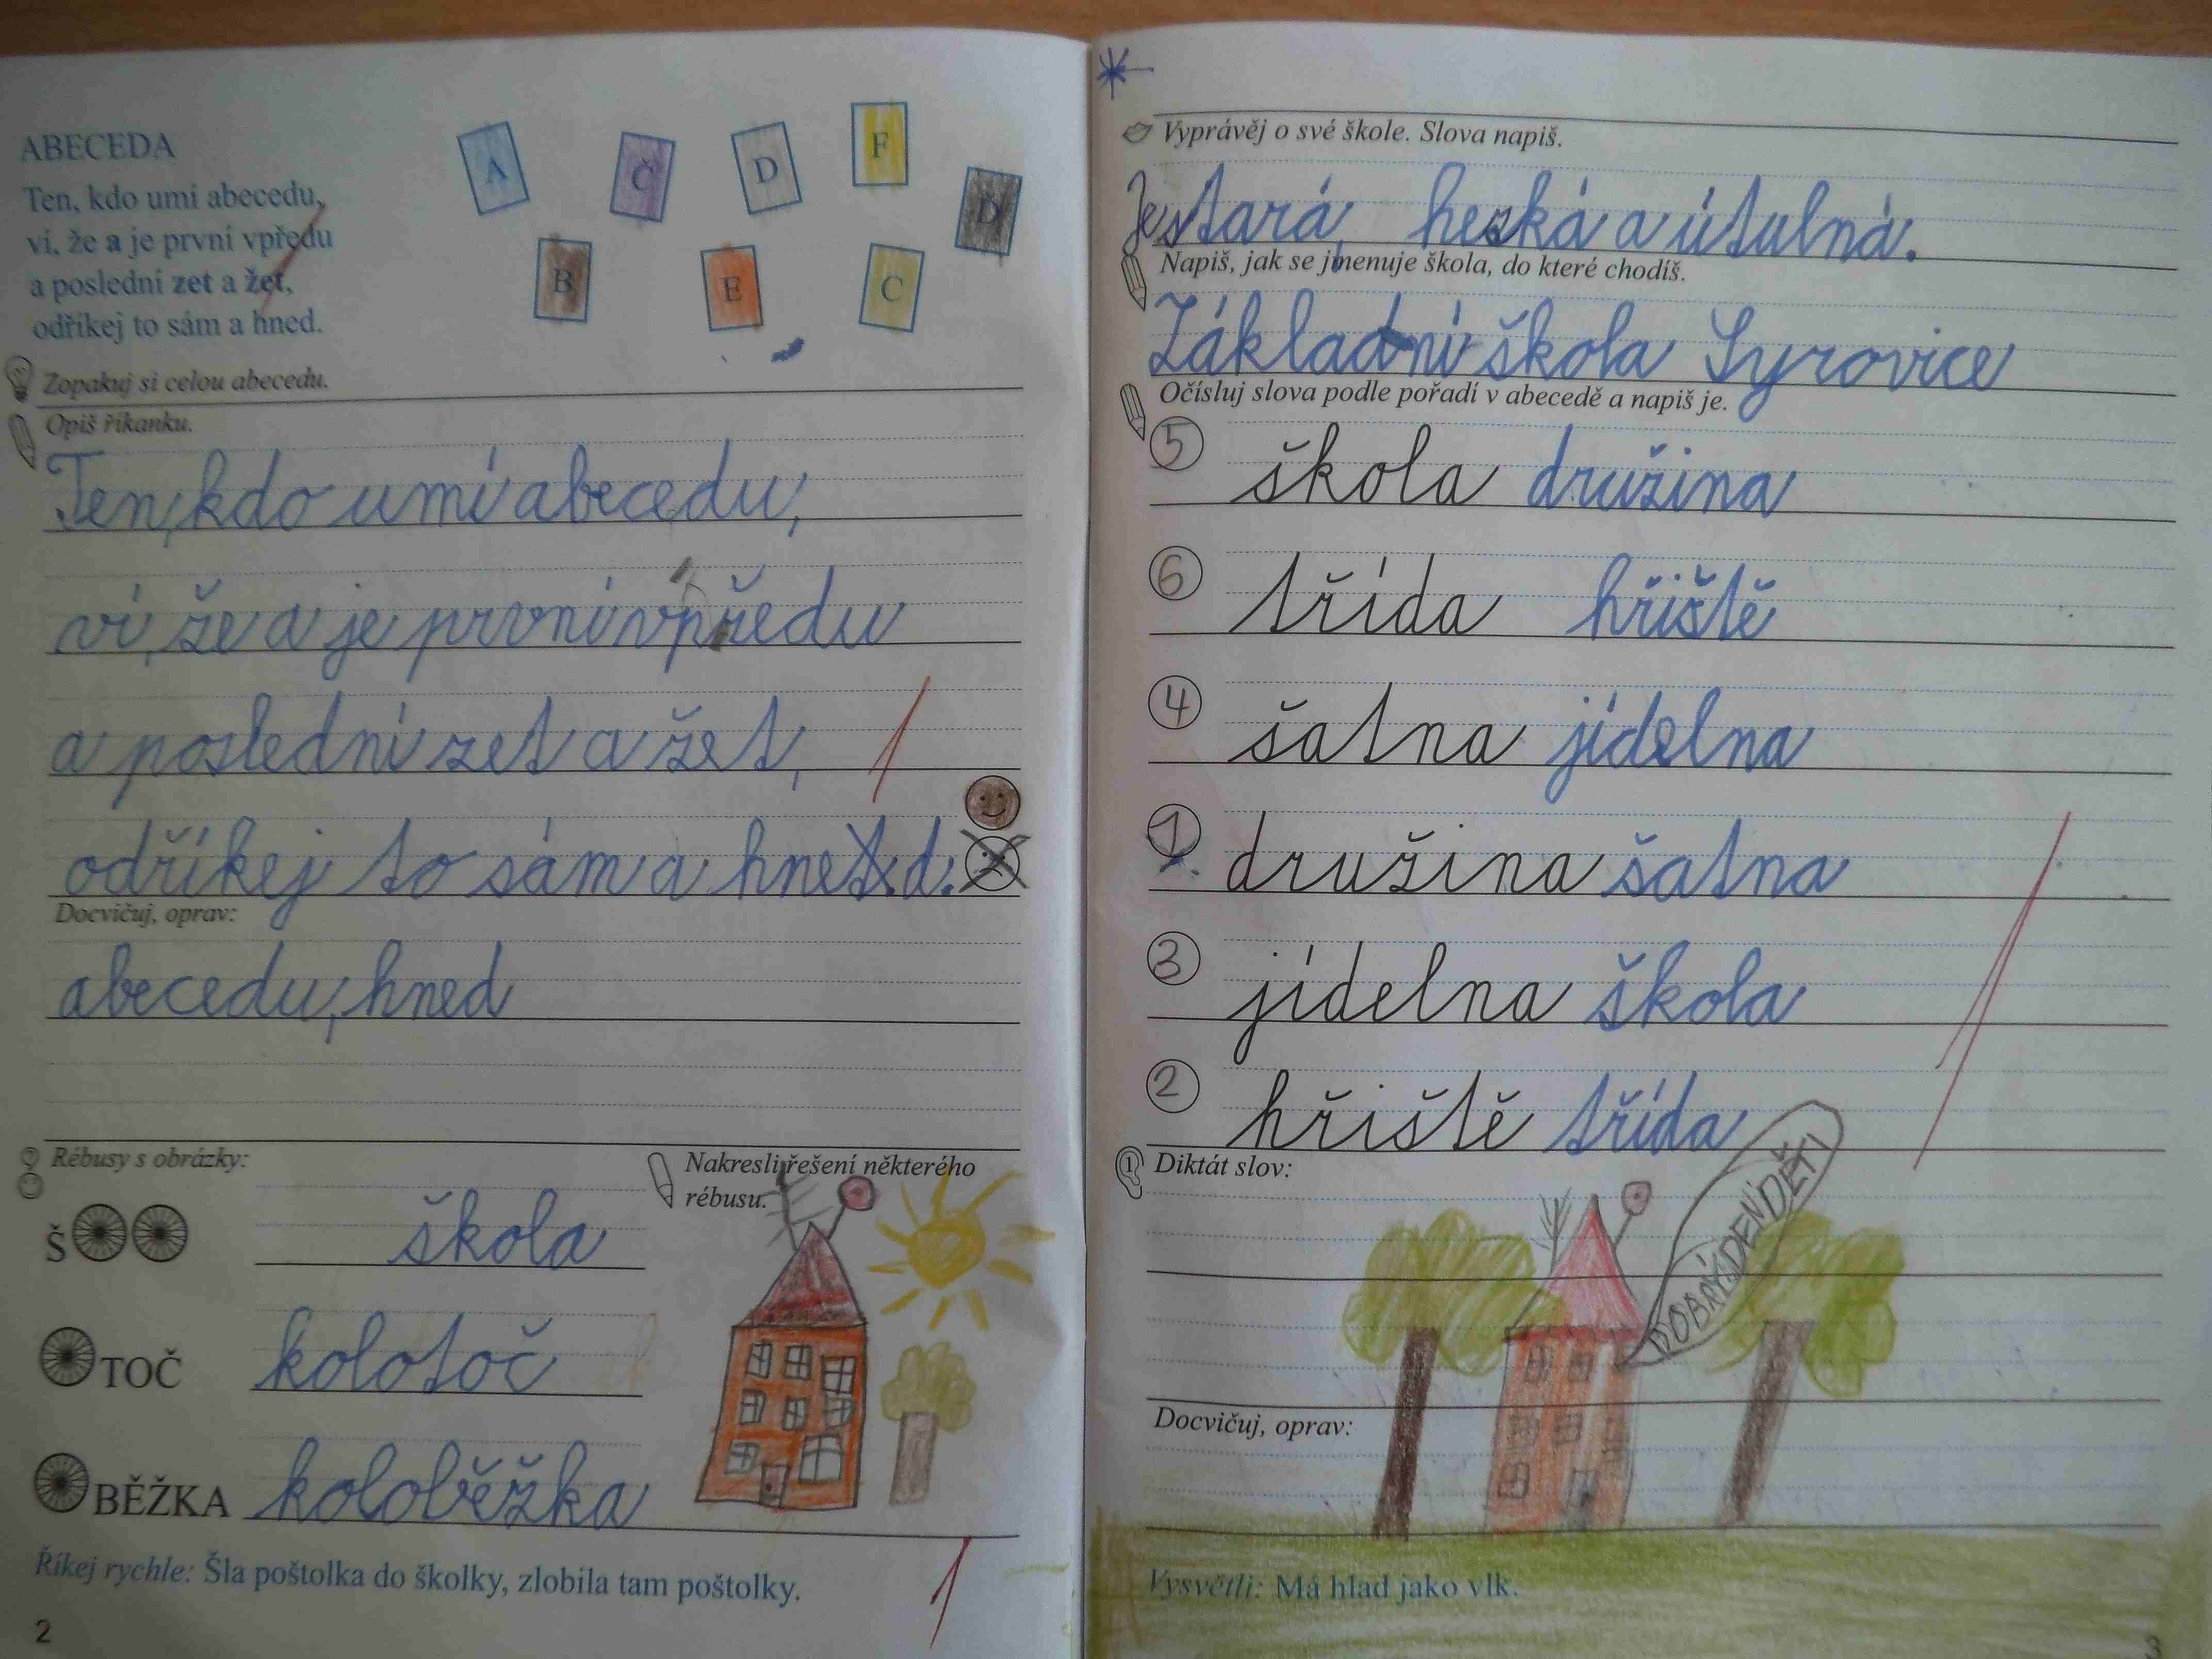 ABECEDA
Ten, kdo umí abecedu,
ví, že a je první vpředu
a poslední zet a žet,
odříkej to sám a hned.
A Č D F Ď
B E C
Zopakuj si celou abecedu.
Opiš říkanku.
Ten, kdo umí abecedu,
ví, že a je první vpředu
a poslední zet a žet,
odříkej to sám a hnet.d.
Docvičuj, oprav:
abecedu, hned
Rébusy s obrázky:
Nakresli řešení některého
rébusu.
Š škola
TOČ kolotoč
BĚŽKA koloběžka
Říkej rychle: Šla poštolka do školky, zlobila tam poštolky.
2
Vyprávěj o své škole. Slova napiš.
Je stará, heská a útulná.
Napiš, jak se jmenuje škola, do které chodíš.
Základní škola Syrovice
Očísluj slova podle pořadí v abecedě a napiš je.
5 škola družina
6 třída hřiště
4 šatna jídelna
1 družina šatna
3 jídelna škola
2 hřiště třída
1 Diktát slov:
DOBRÝ DEN DĚTI
Docvičuj, oprav:
Vysvětli: Má hlad jako vlk.
3